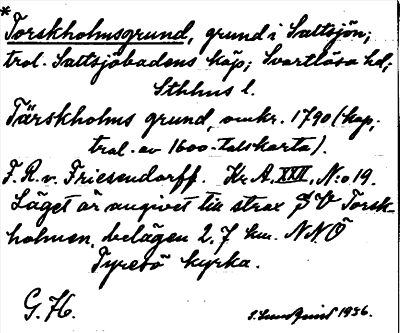 * Torskholmsgrund, grund i Saltsjön;
trol. Saltsjöbadens köp; Svartlösa hd;
Sthlms l.
Tärskholms grund, omkr. 1790 (kop.
trol. av 1600-talskarta).
F. R. v. Friesendorff. Kr. A. XXI, N:o 19.
Läget är angivet till strax SV Torsk-
holmen, belägen 2,7 km. NNÖ
Tyresö kyrka.
G. H. S. Lundqvist 1936.